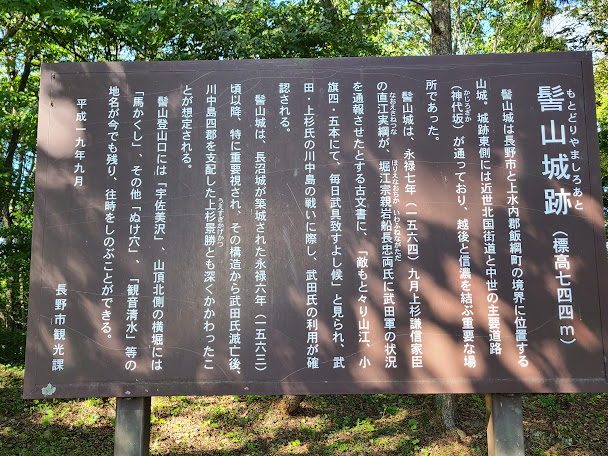 髻山城跡（標高七四四ｍ）
もとどりやまじょうあと
髻山城は長野市と上水内郡飯綱町の境界に位置する
山城。城跡東側には近世北国街道と中世の主要道路
（神代坂）が通っており、越後と信濃を結ぶ重要な場
かじろざか
所であった。
髻山城は、永禄七年（一五六四）九月上杉謙信家臣
の直江実綱が、堀江宗親岩船長忠両氏に武田軍の状況
なおえさねつな
ほりえむねちか いわふねながただ
を通報させたとする古文書に、「敵もと々り山江、小
旗四・五本にて、毎日武具致すよし候」と見られ、武
田・上杉氏の川中島の戦いに際し、武田氏の利用が確
認される。
髻山城は、長沼城が築城された永禄六年（一五六三）
頃以降、特に重要視され、その構造から武田氏滅亡後、
川中島四郡を支配した上杉景勝とも深くかかわったこ
うえすぎかげかつ
とが想定される。
髻山登山口には「宇佐美沢」、山頂北側の横堀には
「馬かくし」、その他「ぬけ穴」、「観音清水」等の
地名が今でも残り、往時をしのぶことができる。
平成一九年九月
長野市観光課